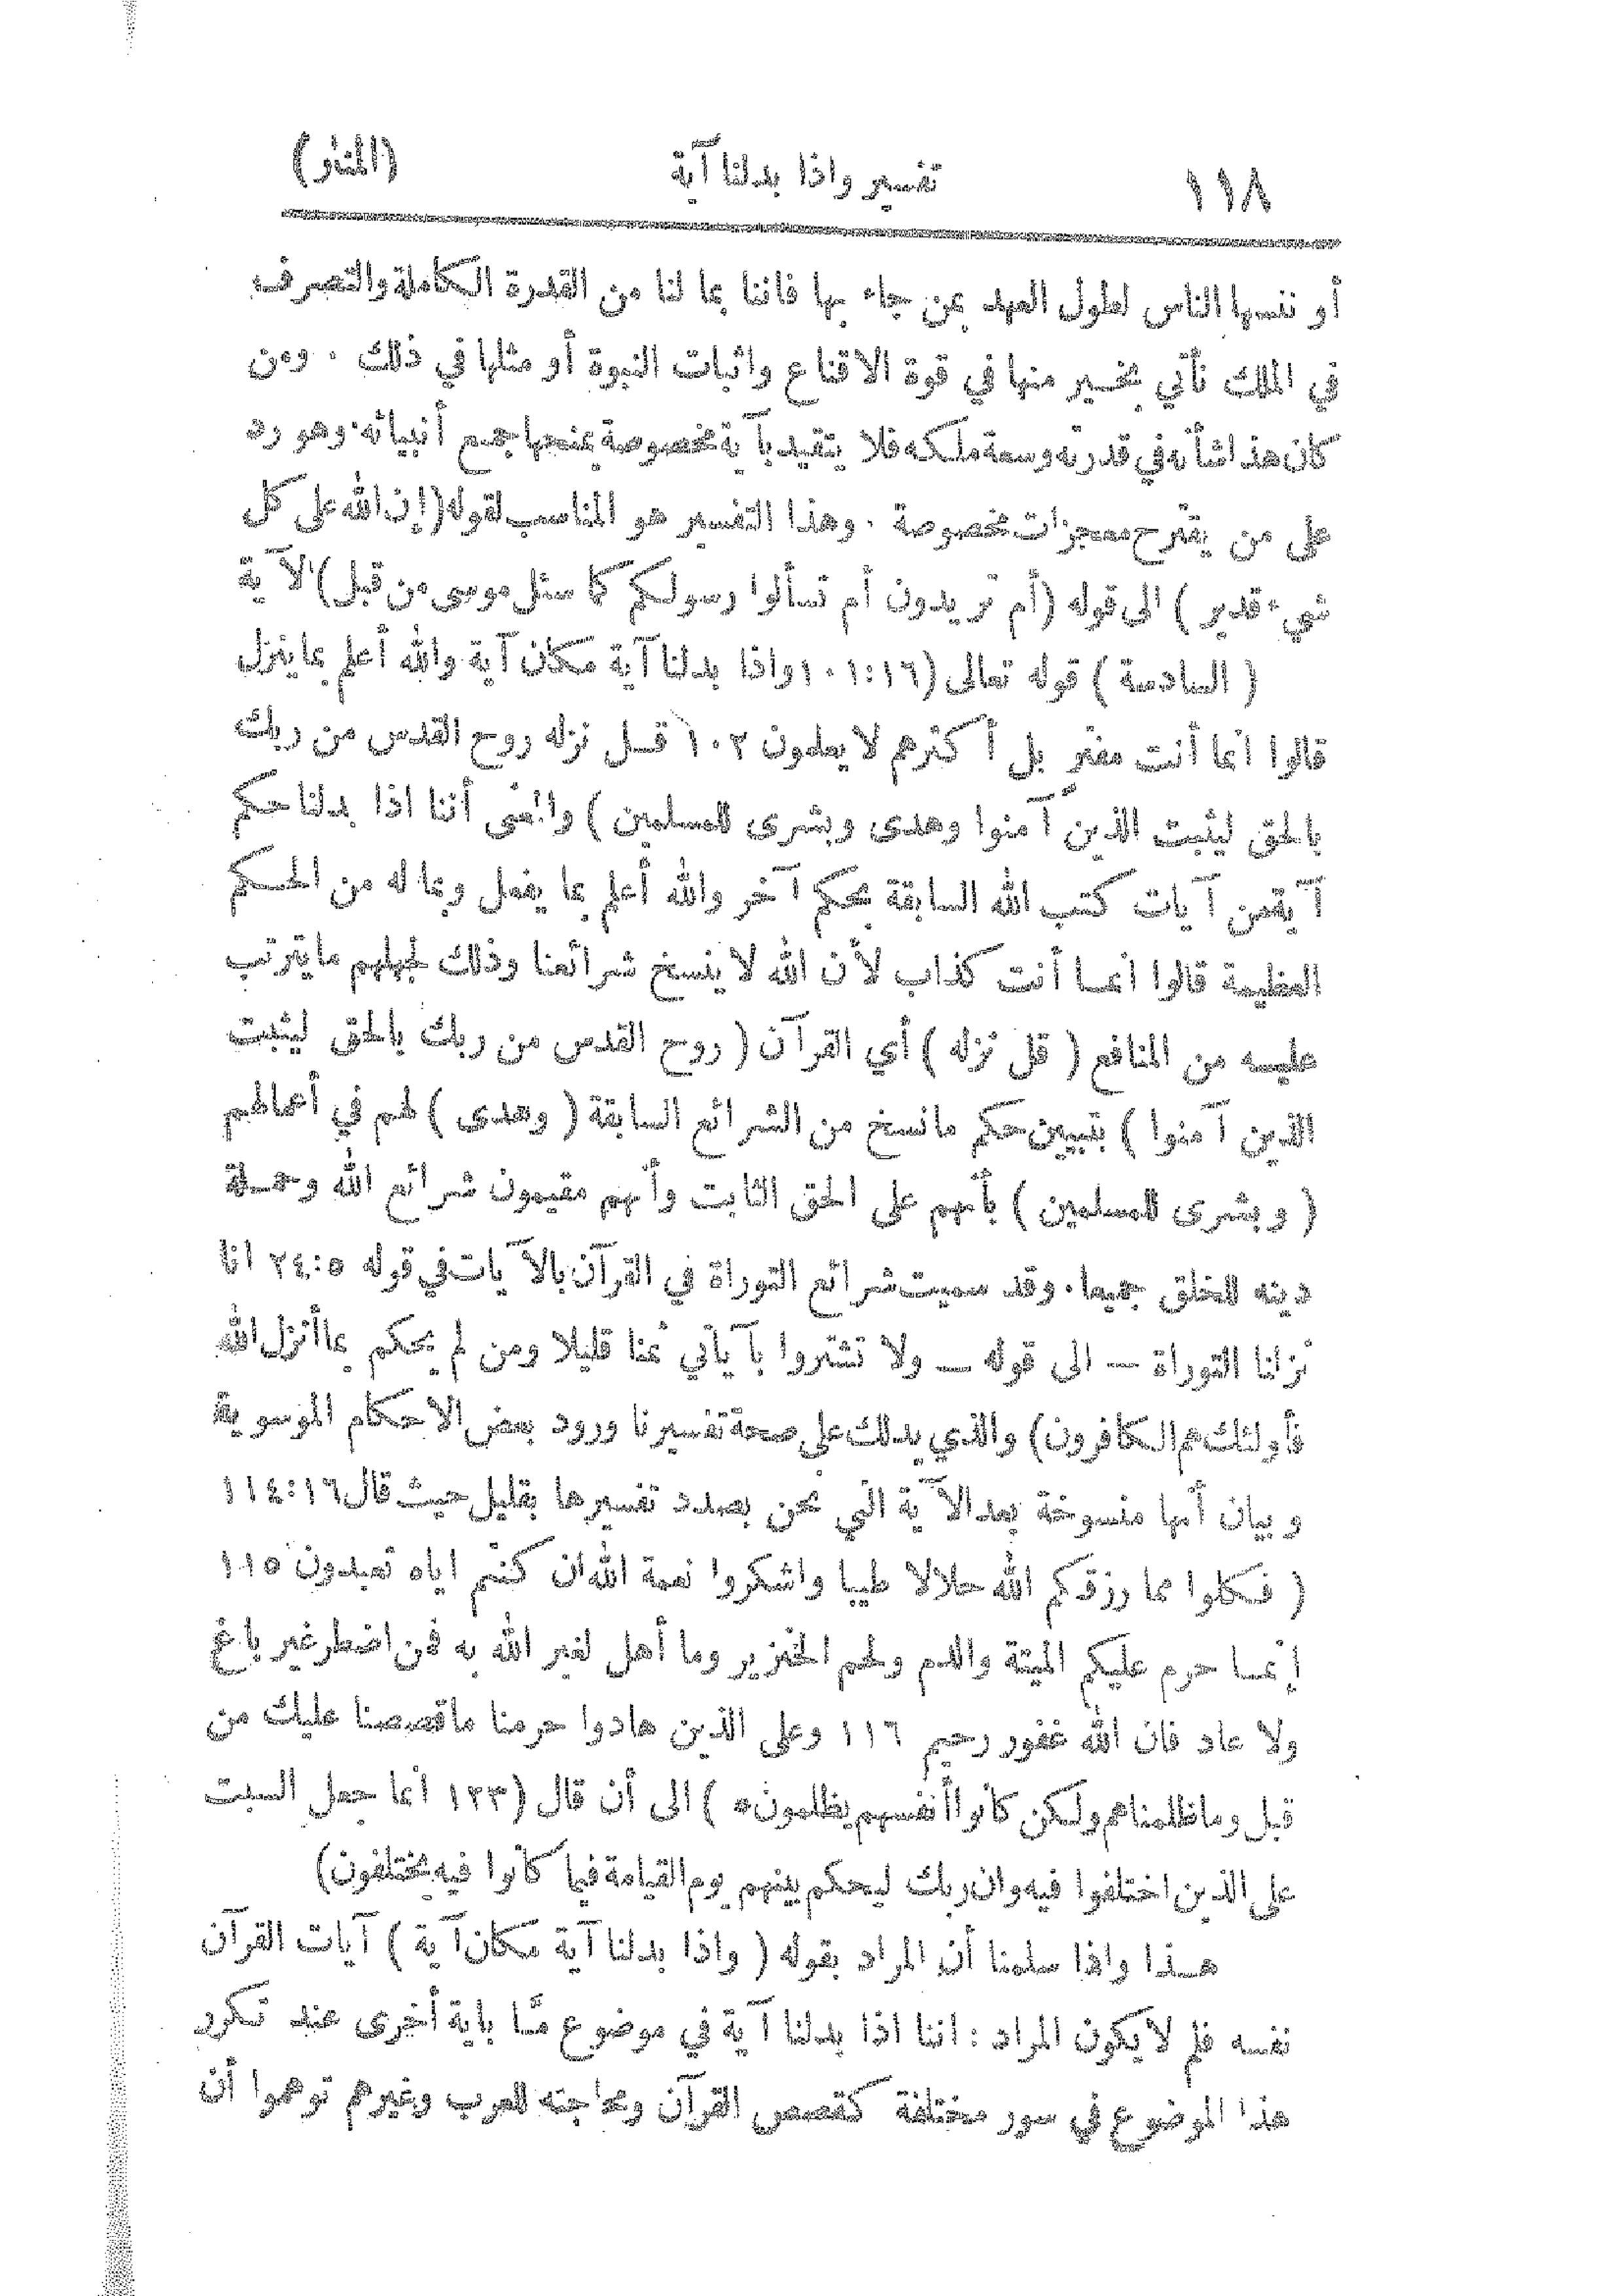 ١١٨ تفسير واذا بدلنا آية (المنار)
أو ننسها الناس لطول العهد بمن جاء بها فاننا بما لنا من القدرة الكاملة والتصرف
في الملك نأتي بخير منها في قوة الاقناع واثبات النبوة أو مثلها في ذلك . ومن
كان هذا شأنه في قدرته وسعة ملكه فلا يتقيد بآية مخصوصة يمنحها جميع أنبيائه. وهو رد
على من يقترح معجزات مخصوصة . وهذا التفسير هو المناسب لقوله (إن الله على كل
شيء قدير ) الى قوله (أم تريدون أم تسألوا رسولكم كما سئل موسى من قبل) الآية
( السادسة ) قوله تعالى (١٦:١٠١ واذا بدلنا آية مكان آية والله أعلم بما ينزل
قالوا انما أنت مفتر بل أكثرهم لا يعلمون ١٠٢ قل نزله روح القدس من ربك
بالحق ليثبت الذين آمنوا وهدى وبشرى للمسلمين ) والمعنى أننا اذا بدلنا حكم
آية من آيات كتب الله السابقة بحكم آخر والله أعلم بما يفعل وبما له من الحكم
العظيمة قالوا انما أنت كذاب لأن الله لا ينسخ شرائعنا وذلك لجهلهم ما يترتب
عليه من المنافع ( قل نزله ) أي القرآن ( روح القدس من ربك بالحق ليثبت
الذين آمنوا ) بتبيين حكم ما نسخ من الشرائع السابقة ( وهدى ) لهم في أعمالهم
( وبشرى للمسلمين ) بأنهم على الحق الثابت وأنهم مقيمون شرائع الله وحملة
دينه للخلق جميعا. وقد سميت شرائع التوراة في القرآن بالآيات في قوله ٢٤:٥ انا
نزلنا التوراة — الى قوله — ولا تشتروا بآياتي ثمنا قليلا ومن لم يحكم بما أنزل الله
فأولئك هم الكافرون) والذي يدلك على صحة تفسيرنا ورود بعض الاحكام الموسوية
وبيان أنها منسوخة بعد الآية التي نحن بصدد تفسيرها بقليل حيث قال ١١٤:١٦
( فكلوا مما رزقكم الله حلالا طيبا واشكروا نعمة الله ان كنتم اياه تعبدون ١١٥
إنما حرم عليكم الميتة والدم ولحم الخنزير وما أهل لغير الله به فمن اضطر غير باغ
ولا عاد فان الله غفور رحيم ١١٦ وعلى الذين هادوا حرمنا ما قصصنا عليك من
قبل وما ظلمناهم ولكن كانوا أنفسهم يظلمون* ) الى أن قال (١٢٣ انما جعل السبت
على الذين اختلفوا فيه وان ربك ليحكم بينهم يوم القيامة فيما كانوا فيه يختلفون)
هذا واذا سلمنا أن المراد بقوله ( واذا بدلنا آية مكان آية ) آيات القرآن
نفسه فلم لا يكون المراد : اننا اذا بدلنا آية في موضوع مّا باية أخرى عند تكرر
هذا الموضوع في سور مختلفة كقصص القرآن ومحاجته للعرب وغيرهم توهموا أن